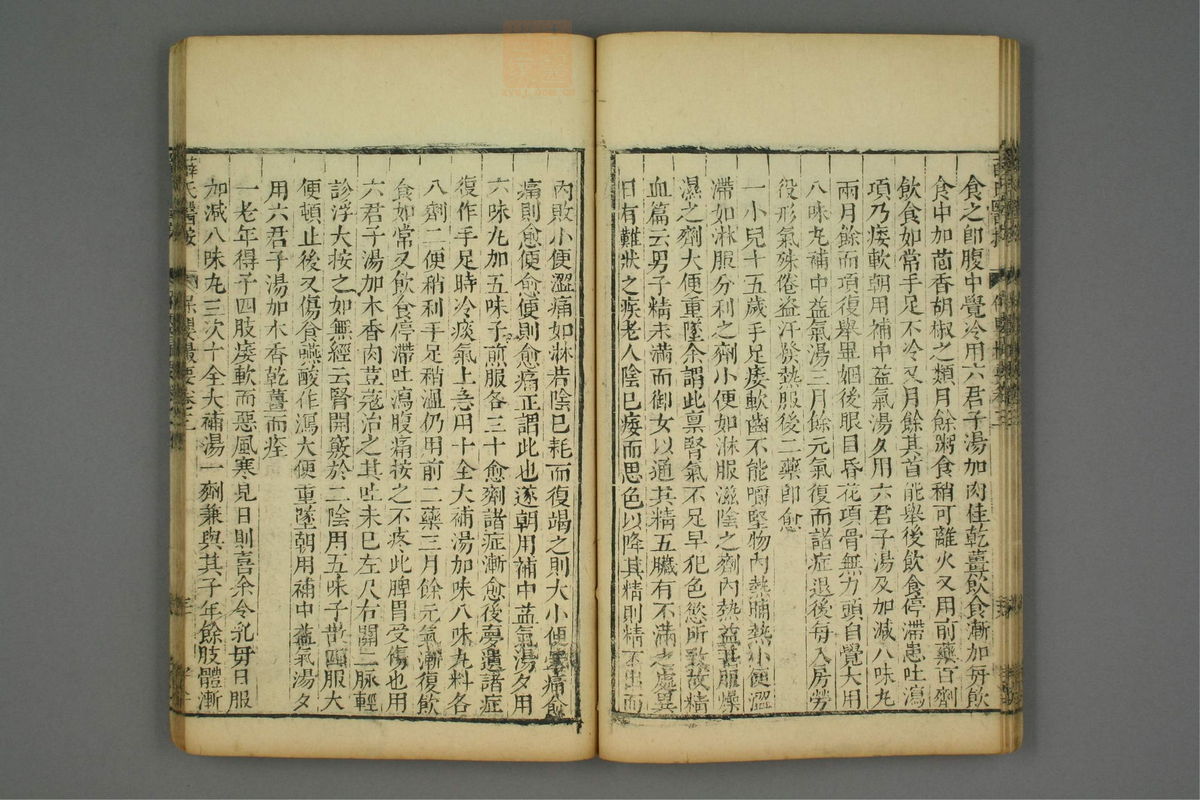 食之卽腹中覺冷用六君子湯加肉桂乾薑飲食漸加每飲
食中加茴香胡椒之類月餘粥食稍可離火又用前藥百劑
飲食如常手足不冷又月餘其首能舉後飲食停滯患吐瀉
項乃痿軟朝用補中益氣湯夕用六君子湯及加減八味丸
兩月餘而項復舉畢姻後眼目昏花項骨無力頭自覺大用
八味丸補中益氣湯三月餘元氣復而諸症退後每入房勞
役形氣殊倦盜汗發熱服後二藥卽愈
一小兒十五歲手足痿軟齒不能嚼堅物內熱晡熱小便澀
滯如淋服分利之劑小便如淋服滋陰之劑內熱益甚服燥
濕之劑大便重墜余謂此稟腎氣不足早犯色慾所致故精
血篇云男子精未滿而御女以通其精五臟有不滿之處異
日有難狀之疾老人陰已痿而思色以降其精則精不出而
內敗小便澀痛如淋若陰已耗而復竭之則大小便牽痛愈
痛則愈便愈便則愈痛正謂此也遂朝用補中益氣湯夕用
六味丸加五味子煎服各三十愈劑諸症漸愈後夢遺諸症
復作手足時冷痰氣上急用十全大補湯加味八味丸料各
八劑二便稍利手足稍溫仍用前二藥三月餘元氣漸復飲
食如常又飲食停滯吐瀉腹痛按之不疼此脾胃受傷也用
六君子湯加木香肉荳蔻治之其吐未已左尺右關二脉輕
診浮大按之如無經云腎開竅於二陰用五味子散四服大
便頓止後又傷食嚥酸作瀉大便重墜朝用補中益氣湯夕
用六君子湯加木香乾薑而痊
一老年得子四肢痿軟而惡風寒見日則喜余令乳母日服
加減八味丸三次十全大補湯一劑兼與其子年餘肢體漸
薛氏醫按
保嬰撮要卷之三